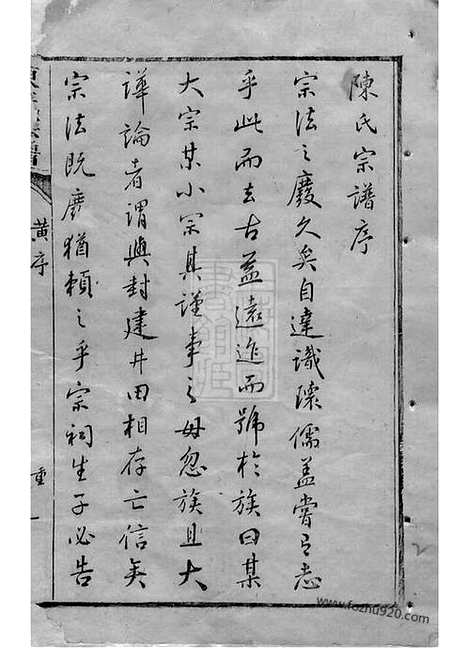 陳氏宗譜序
宗法之廢久矣自達識諫儒蓋嘗有志
乎此而去古益遠進而號於族曰某
大宗某小宗其謹事之毋忽族且大
譁論者謂與封建井田相存亡信矣
宗法既廢猶賴之乎宗祠生子必告
黃序
重
一
www.fozhu920.com